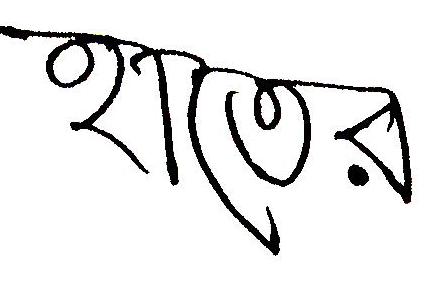 হাতের